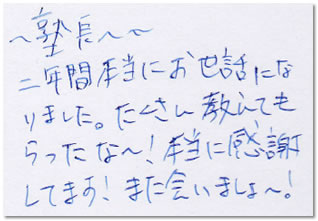 〜塾長へ〜
二年間本当にお世話にな
りました。たくさん教えても
らったな〜!本当に感謝
してます!また会いましょ〜!